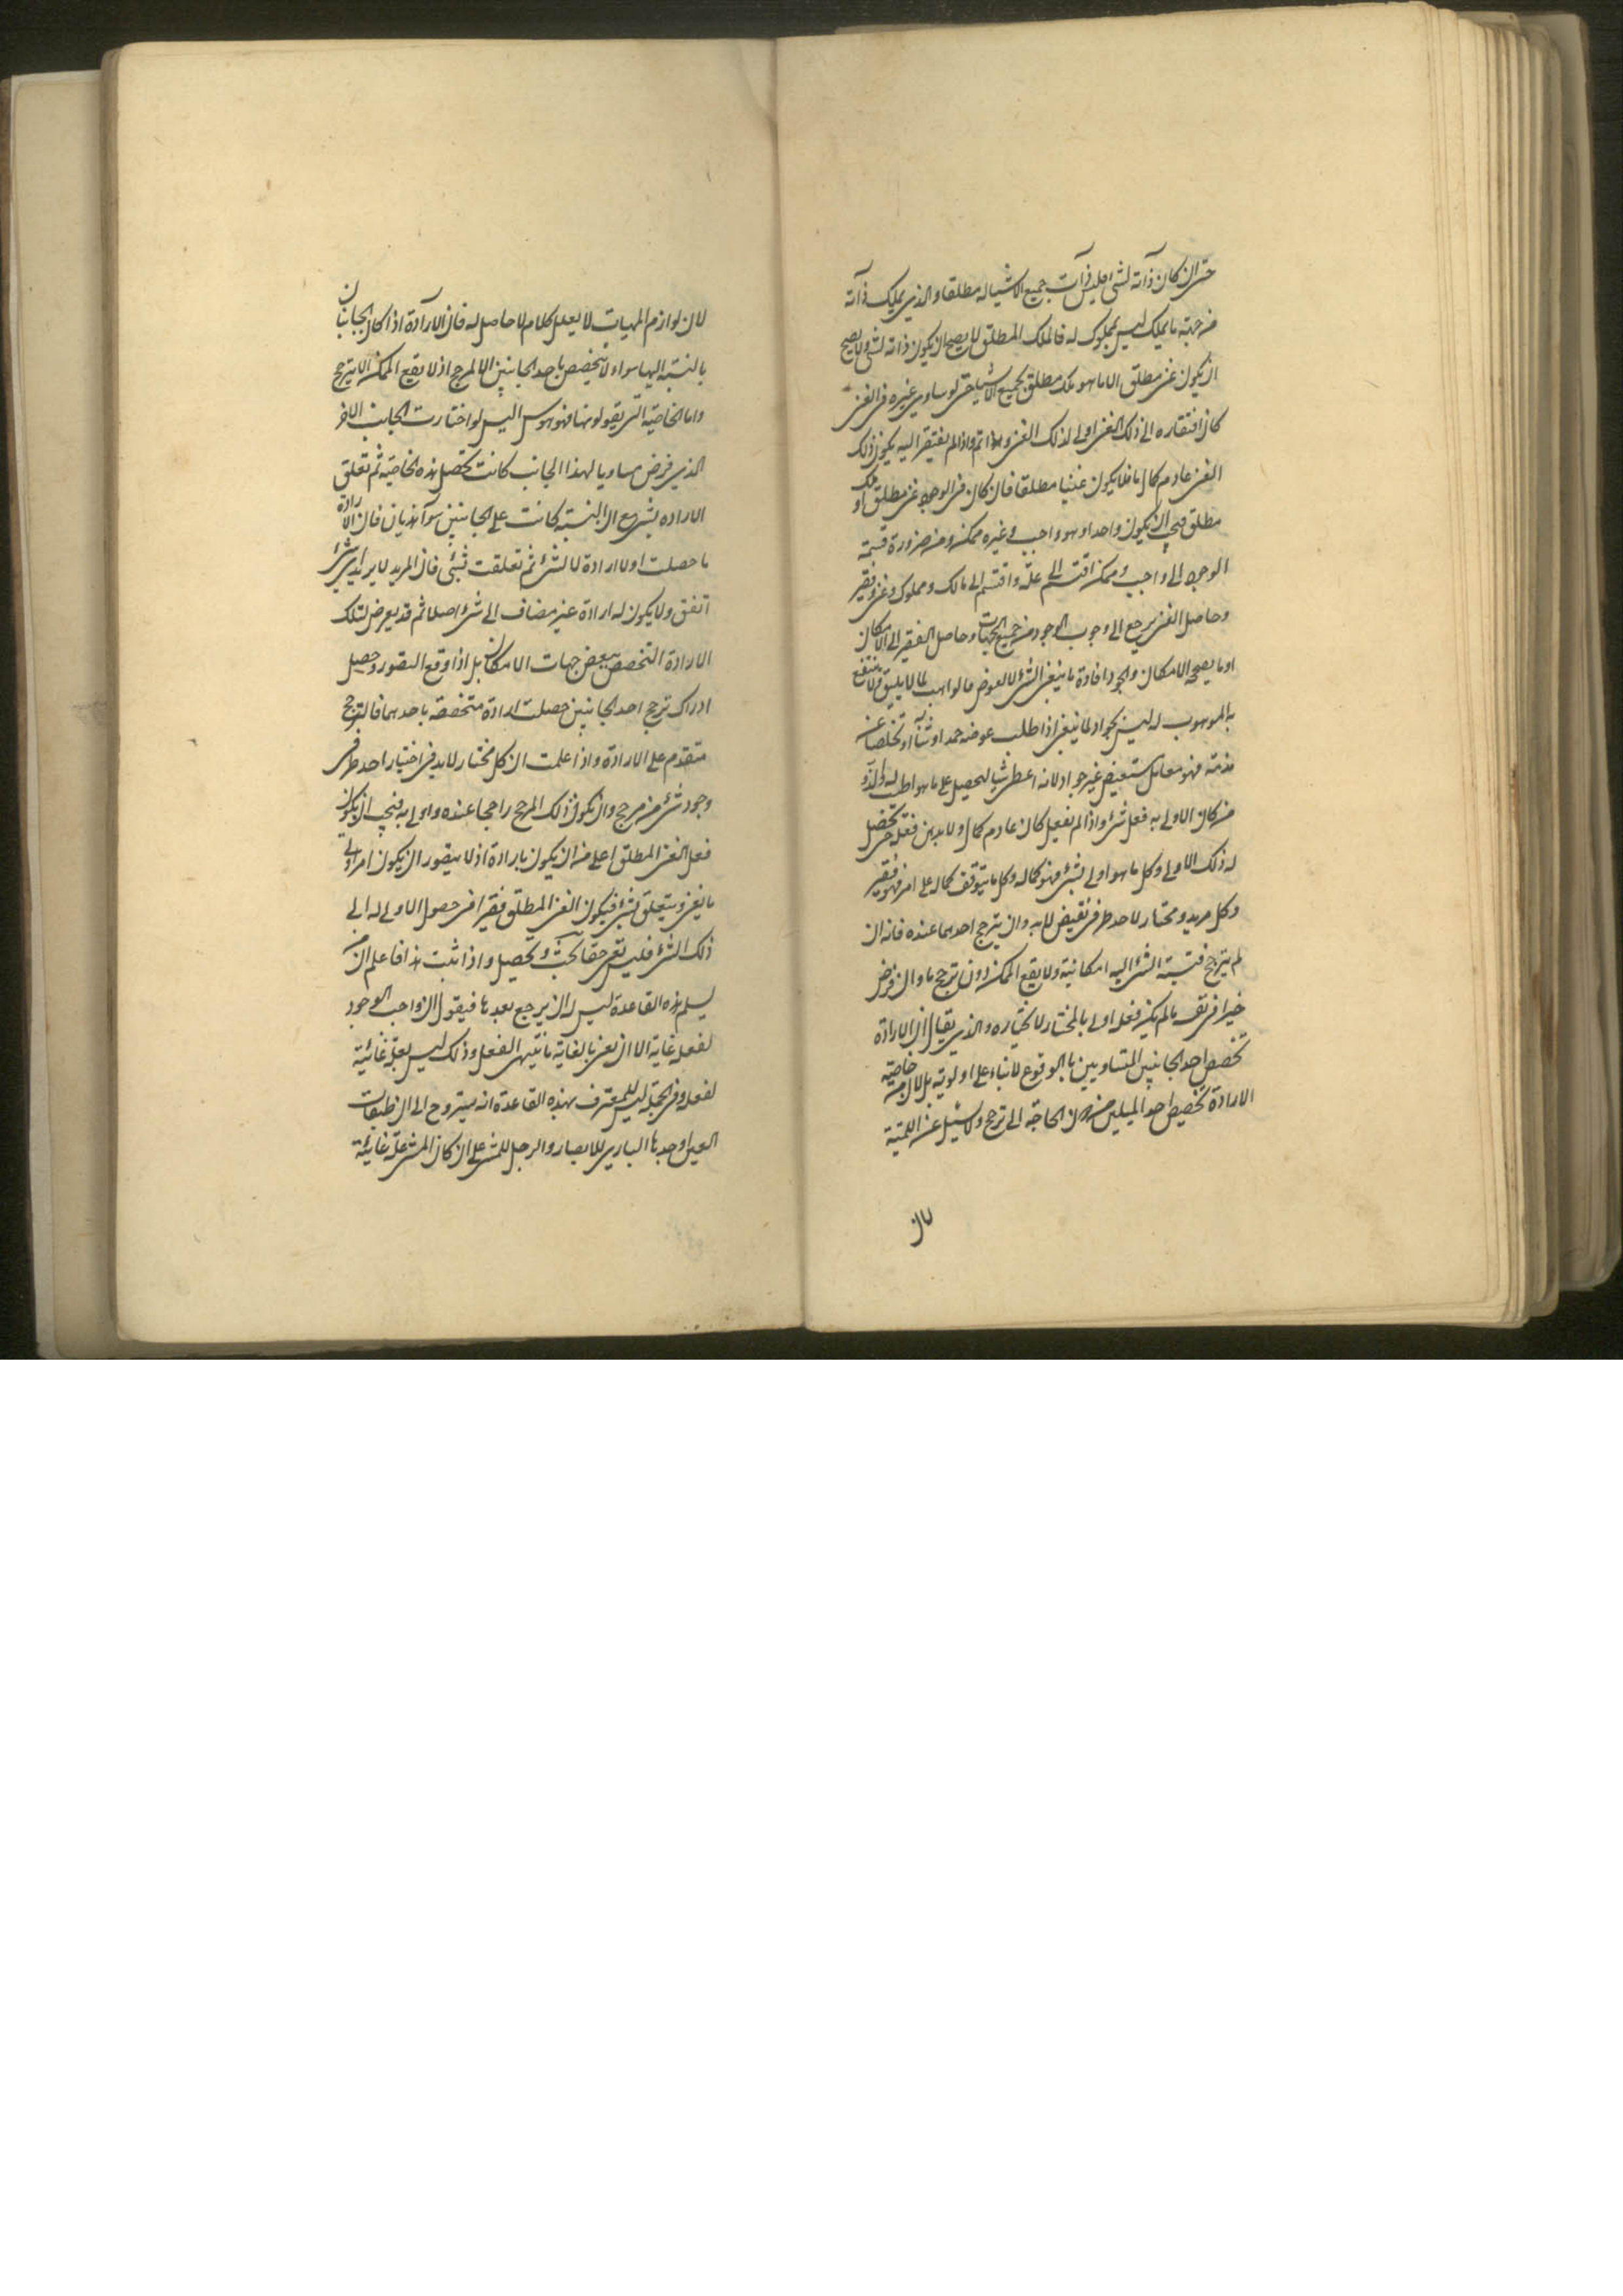 حتى ان كان ذاته لشئ فليس ذات جميع الاشياء له مطلقا والذي يملك ذاته
من جهة ما يملك ليس بمملوك له فالملك المطلق لا يصح ان يكون ذاته لشئ ولا يصح
ان يكون غنى مطلق الا ما هو ملك مطلق لجميع الاشياء حتى لو ساوى غيره فى الغنى
كان افتقاره الى ذلك الغنى اولى لذلك الغنى واتم واذا لم يفتقر اليه يكون ذلك
الغنى عادم كمال ما فلا يكون غنيا مطلقا فان كان فى الوجود غنى مطلق او ملك
مطلق فيجب ان يكون واحدا وهو واجب وغيره ممكن ومن ضرورة قسمة
الوجود الى واجب وممكن اقتسم الى علة واقتسم الى مالك ومملوك وغنى وفقير
وحاصل الغنى يرجع الى وجوب الوجود من جميع الجهات وحاصل الفقير الى الامكان
او ما يصحبه الامكان والجود افادة ما ينبغى الشئ لا لعوض فالواهب لما لا يليق ولا ينتفع
به الموهوب له ليس بجواد لما ينبغى اذا طلب عوضه حمدا وثناء او تخلصا عن
مذمة فهو معامل مستعيض غير جواد لانه اعطى شيا ليحصل على ما هو اطلب له والذ و
من كان الاولى به فعل شئ واذا لم يفعل كان عادم كمال ولا بد من فعل حتى يحصل
له ذلك الاولى وكل ما هو اولى بشئ فهو كماله وكل ما يتوقف كماله على امر فهو فقير
وكل مريد ومختار لاحد طرفى نقيض لا بد وان يترجح احدهما عنده فانه ان
لم يترجح فنسبة الشئ اليه امكانية ولا يقع الممكن دون ترجح ما وان فرض
خيرا فى نفسه ما لم يكن فعله اولى بالمختار لا يختاره والذي يقال ان الارادة
تخصص احد الجانبين المتساويين بالوقوع لا بناء على اولوية بل لان من خاصية
الارادة تخصيص احد الميلين من دون الحاجة الى ترجح ولا يسئل عن اللمية
لان
لان لوازم المهيات لا يعلل كلام لا حاصل له فان الارادة اذا كان الجانبان
بالنسبة اليها سواء لا يتخصص باحد الجانبين الا لمرجح اذ لا يقع الممكن الا بترجح
واما الخاصية التى يقولونها فهو هوس اليس لو اختارت الجانب الاخر
الذي فرض مساويا لهذا الجانب كانت تحصل هذه الخاصية ثم تعلق
الارادة بشئ مع ان النسبة كانت على الجانبين سواء هذيان فان الارادة
ما حصلت اولا ارادة لا لشئ ثم تعلقت بشئ فان المريد لا يريد اي شئ
اتفق ولا يكون له ارادة غير مضاف الى شئ اصلا ثم قد يعرض لتلك
الارادة التخصص ببعض جهات الامكان بل اذا وقع التصور وحصل
ادراك ترجح احد الجانبين حصلت ارادة متخصصة باحدهما فالترجح
متقدم على الارادة واذا علمت ان كل مختار لا بد فى اختيار احد طرفى
وجود شئ من مرجح وان يكون ذلك المرجح راجحا عنده واولى به فيجب ان يكون
فعل الغنى المطلق اعلى من ان يكون بارادة اذ لا يتصور ان يكون امر اولى
بالغنى ويتعلق بشئ فيكون الغنى المطلق فقيرا فى حصول الاولى له الى
ذلك الشئ فليس بغنى حقا بحث وتحصيل واذا ثبت هذا فاعلم ان من
يسلم هذه القاعدة ليس له ان يرجع بعدها فيقول ان واجب الوجود
لفعله غاية الا ان يعنى بالغاية ما ينتهى الفعل وذلك ليس بعلة غائية
لفعله وفى الجملة ليس للمعترف بهذه القاعدة انه يتروح الى ان طبقات
العين اوجدها الباري للابصار والرجل للمشى على ان كان المشى علة غائية